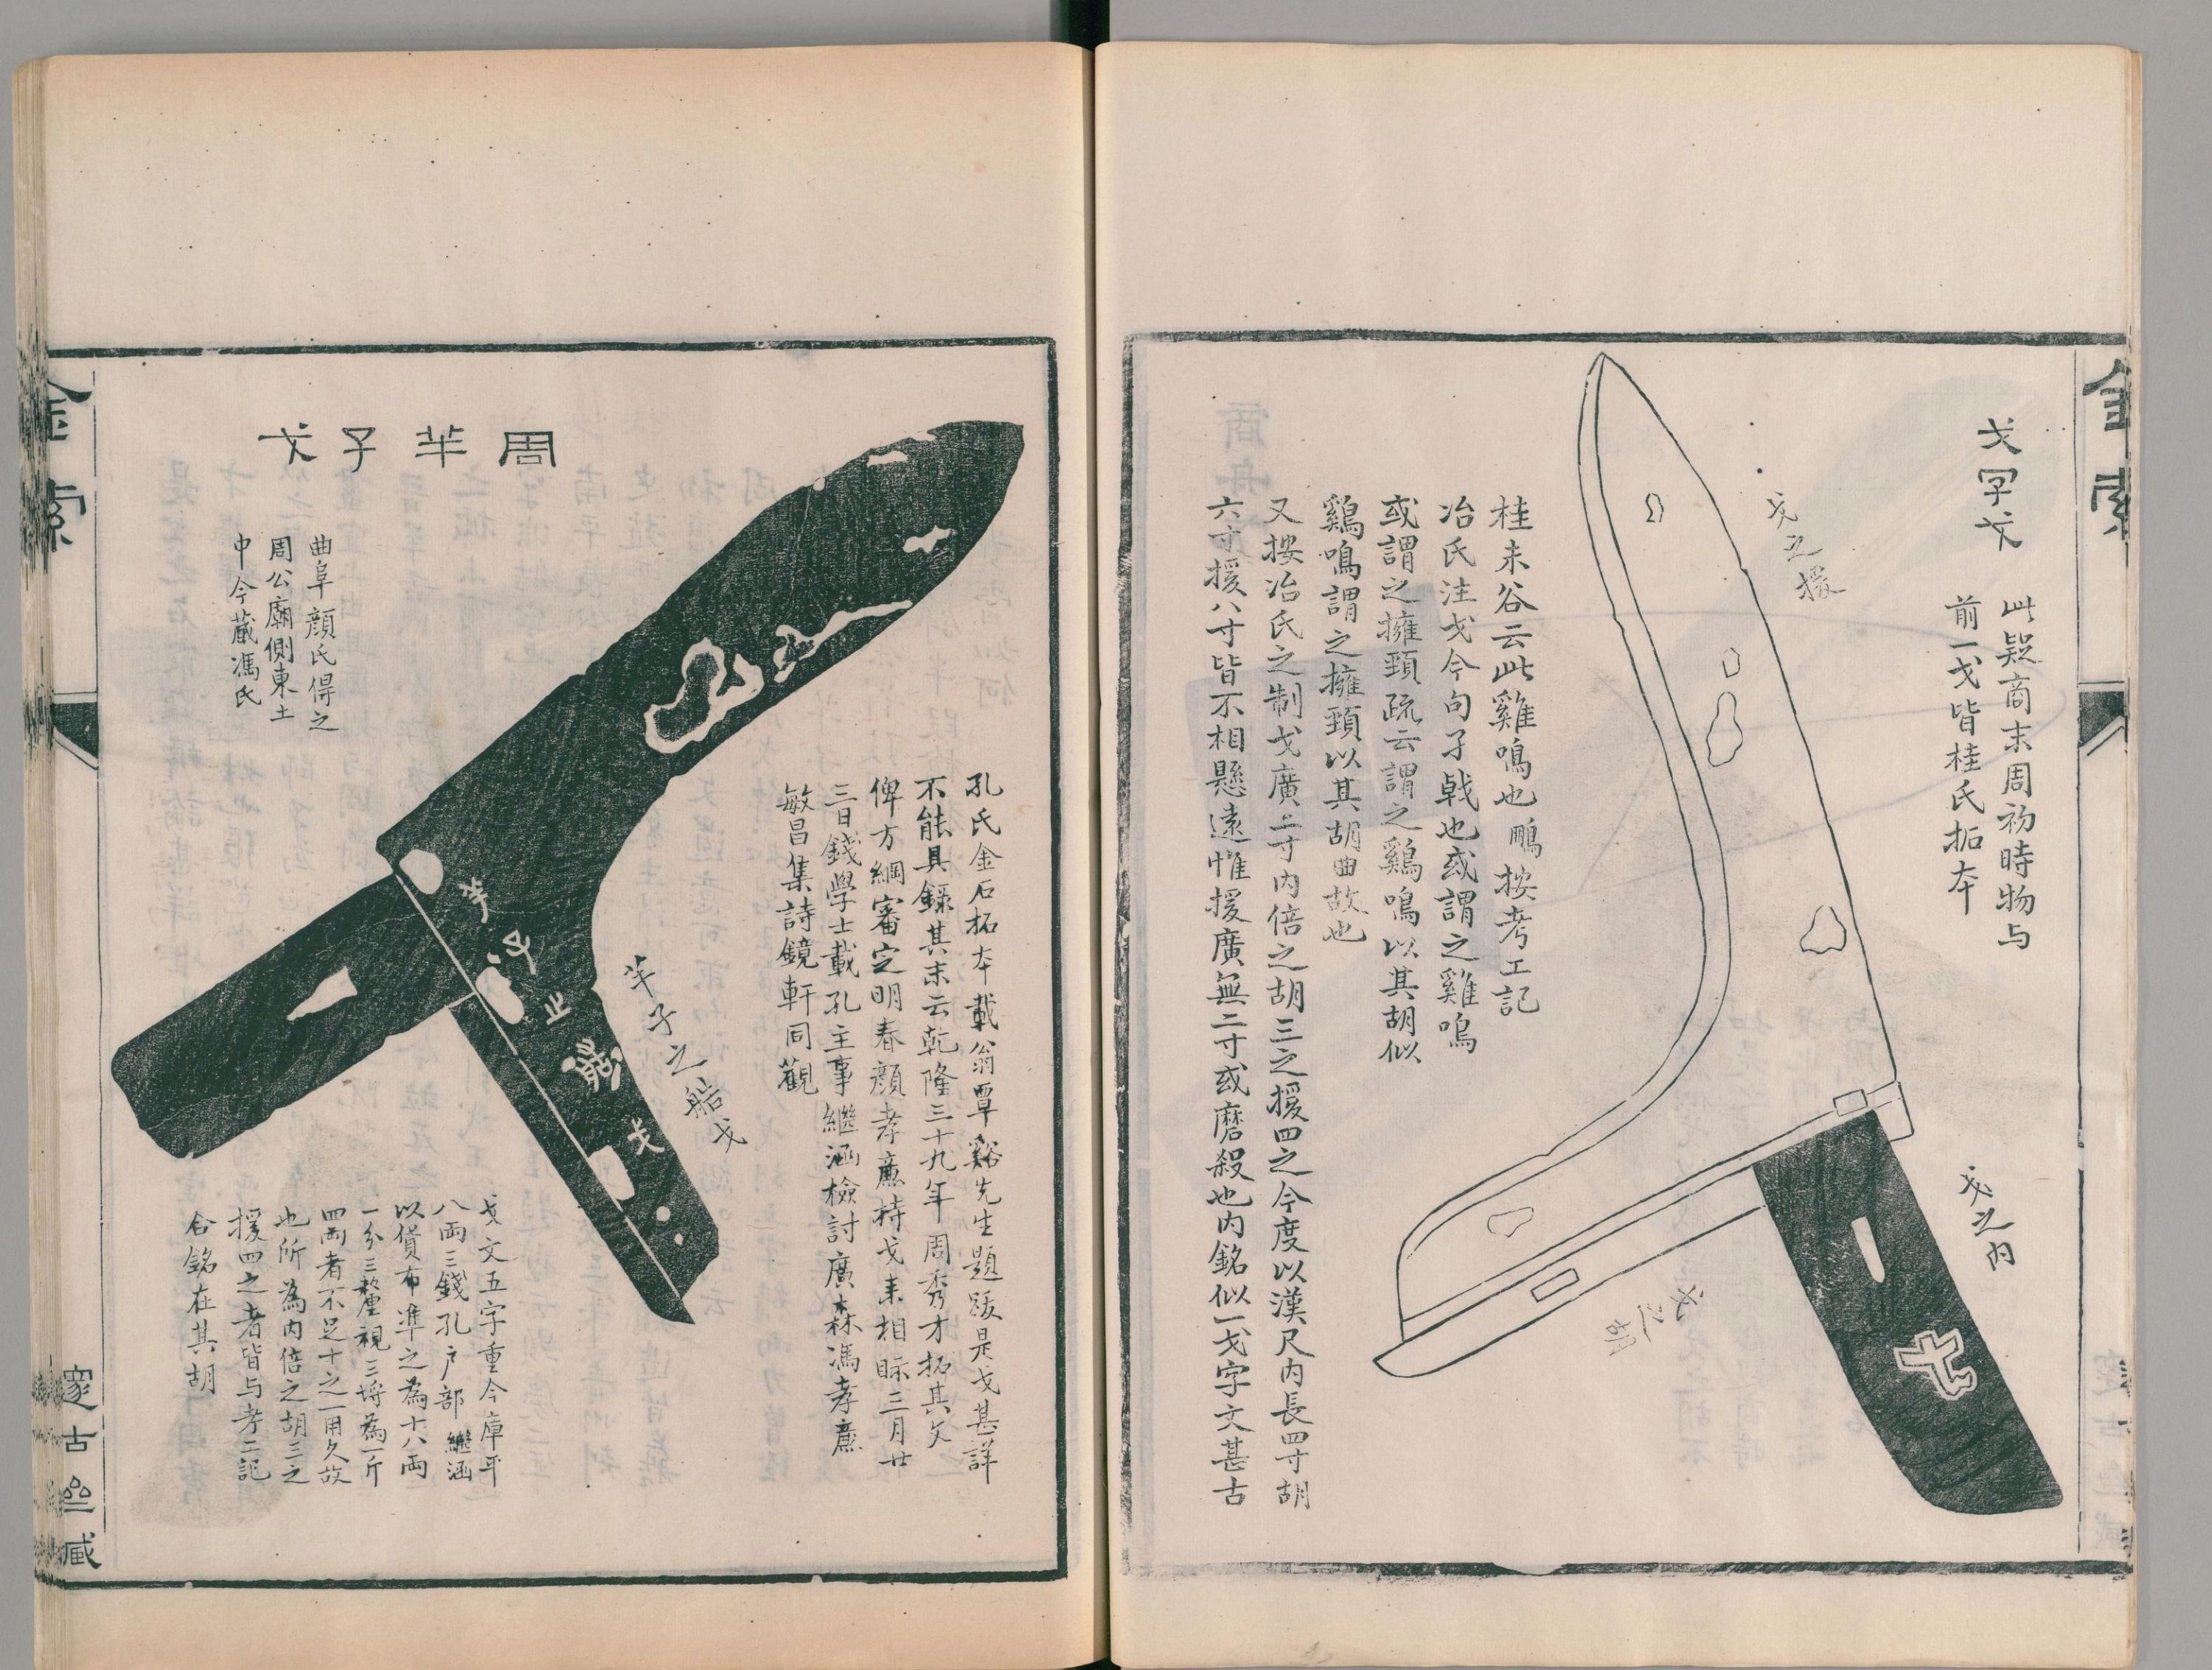 戈字戈
此疑商末周初時物与
前一戈皆桂氏拓本
戈之援
戈之内
戈之胡
桂未谷云此雞鳴也鵬按考工記
冶氏注戈今句孑戟也或謂之雞鳴
或謂之擁頸疏云謂之鷄鳴以其胡似
鷄鳴謂之擁頸以其胡曲故也
又按冶氏之制戈廣二寸内倍之胡三之援四之今度以漢尺内長四寸胡
六寸援八寸皆不相懸遠惟援廣無二寸或磨殺也内銘似一戈字文甚古
金索
周羊子戈
孔氏金石拓本載翁覃谿先生題跋是戈甚詳
不能具録其末云乾隆三十九年周秀才拓其文
俾方綱審定明春顔孝廉持戈来相眎三月廿
三日錢學士載孔主事繼涵檢討廣森馮孝廉
敏昌集詩鏡軒同觀
羊子之艁戈
曲阜顔氏得之
周公廟側東土
中今蔵馮氏
戈文五字重今庫平
八兩三錢孔戶部繼涵
以貨布準之為十八兩
一分三釐視三鋝為一斤
四兩者不足十之一用久故
也所為内倍之胡三之
援四之者皆与考工記
合銘在其胡
金索
邃古𠫵臧